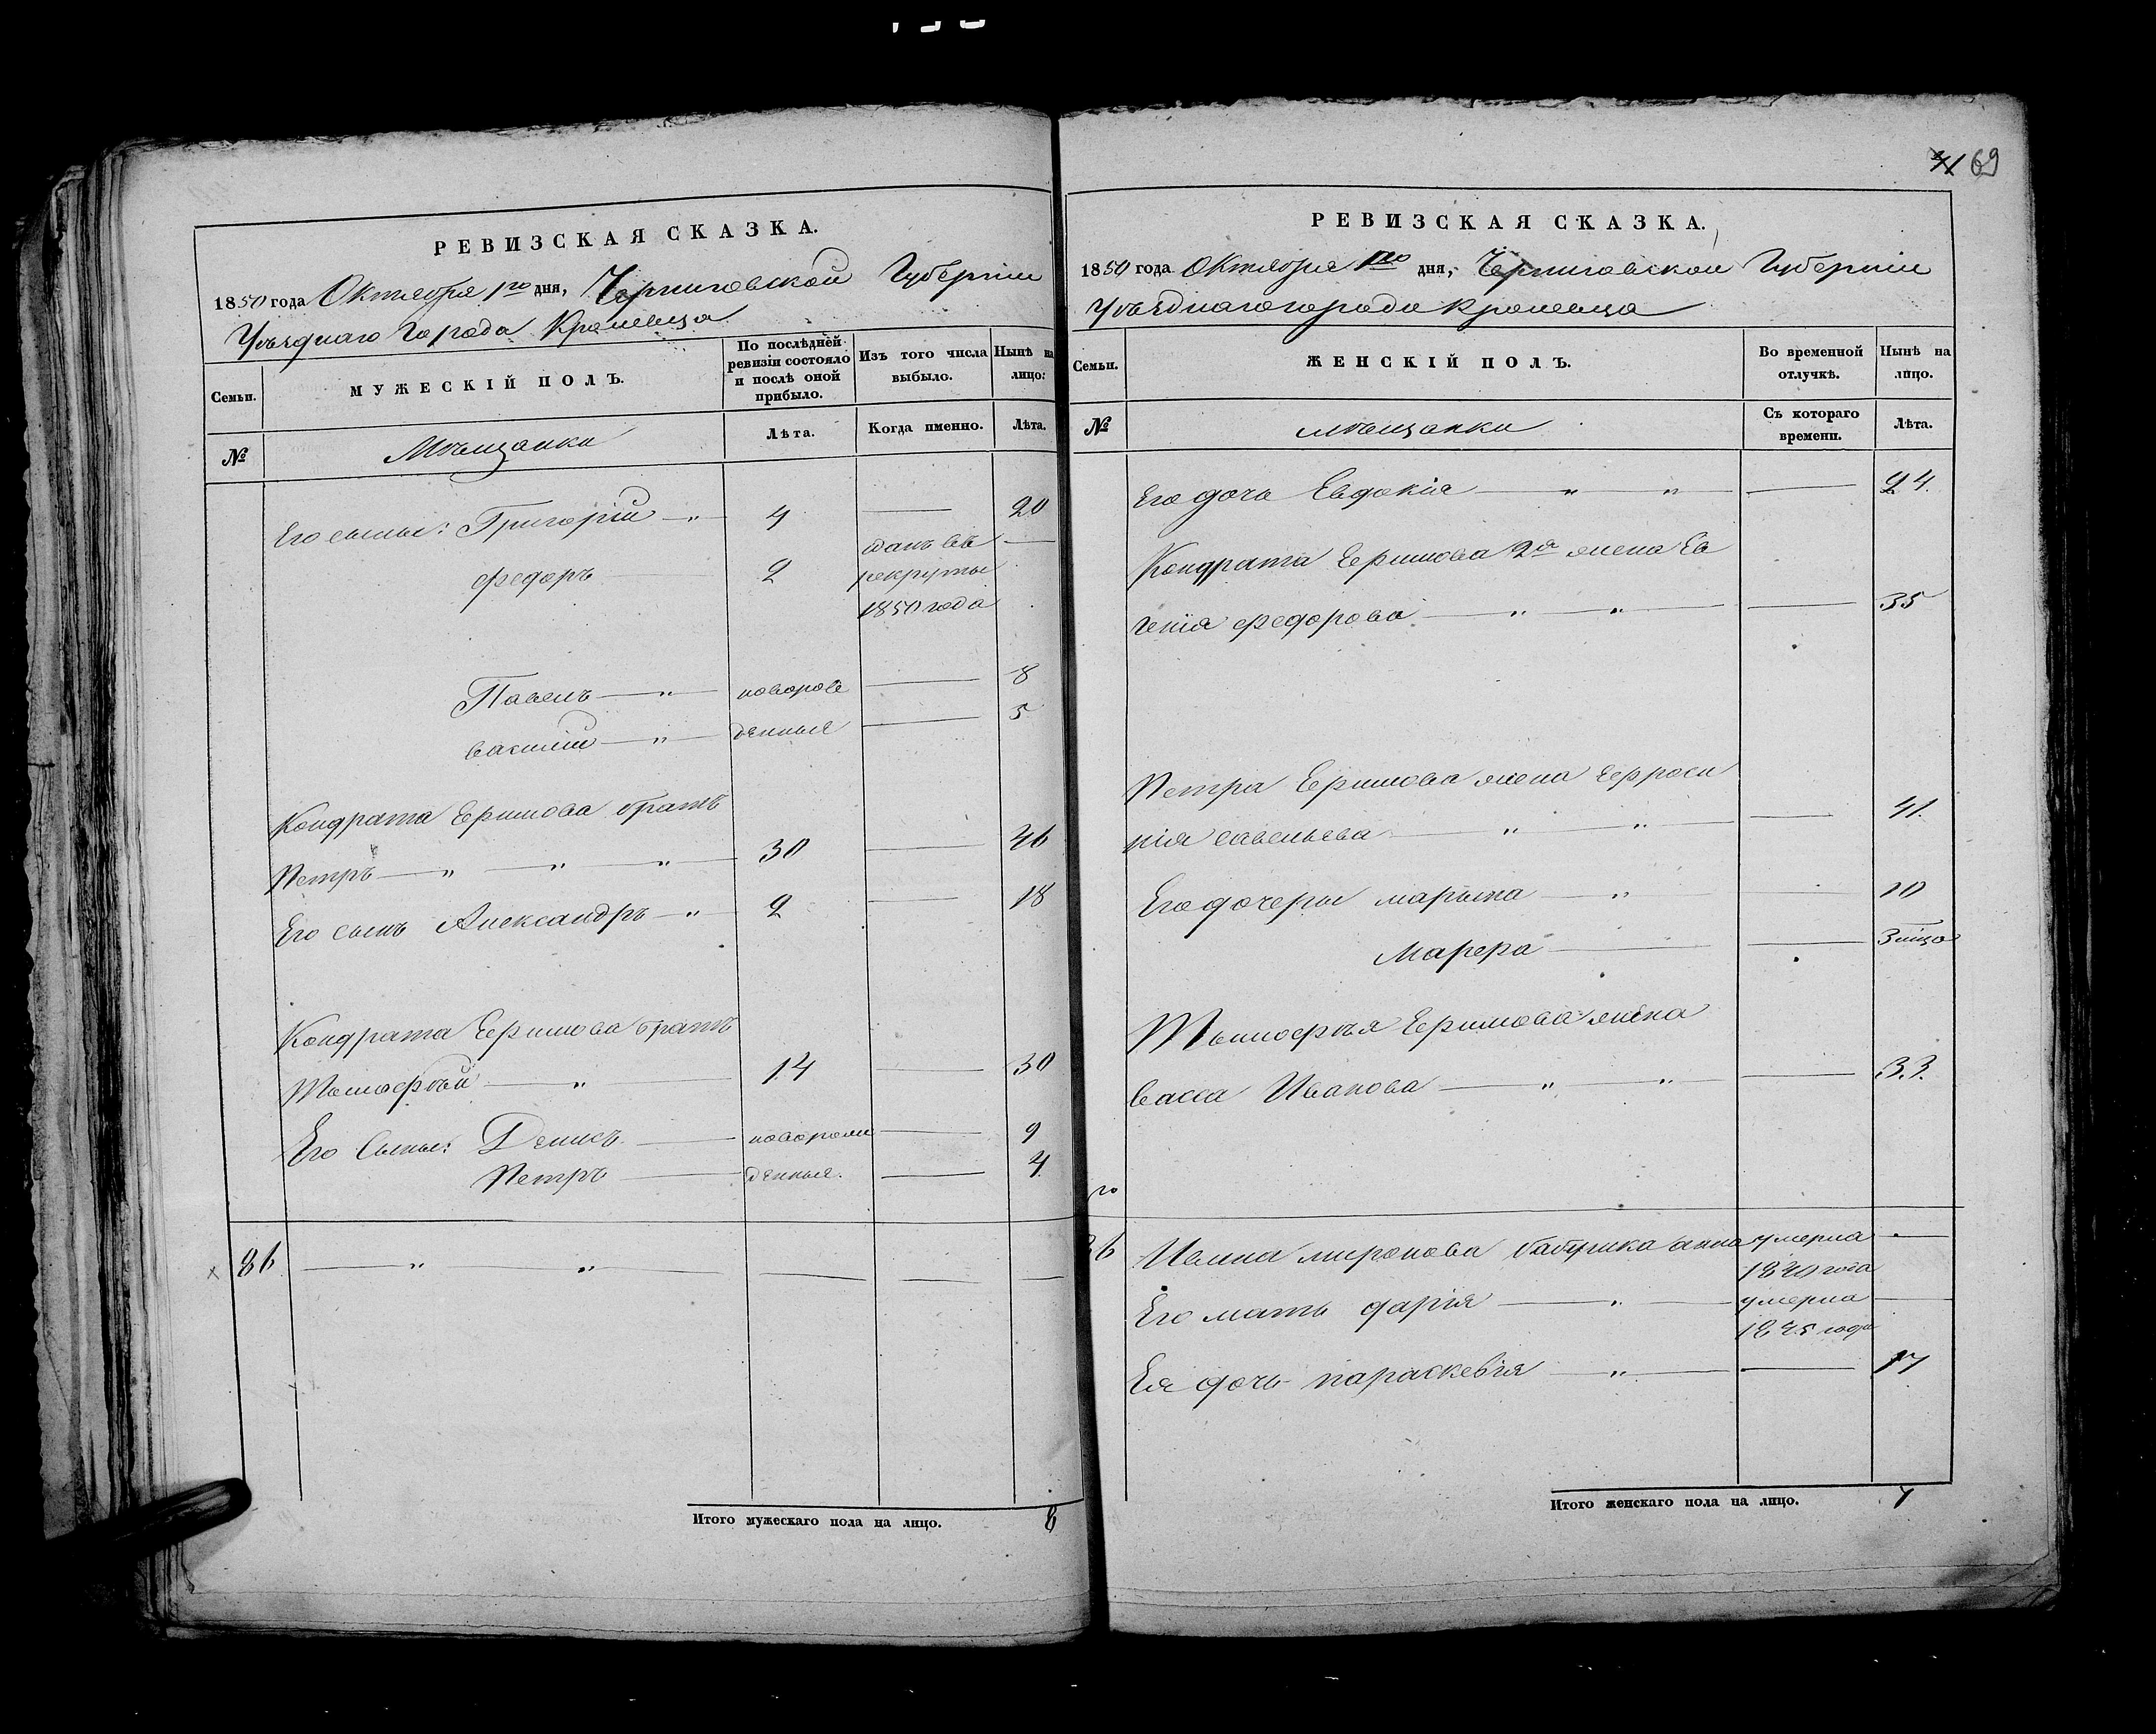 69
РЕВИЗСКАЯ СКАЗКА.
1850 года Октября 1го дня, Черниговской Губерніи
Уѣзднаго Города Кролевца
Семьи.
МУЖЕСКІЙ ПОЛЪ.
По послѣдней ревизіи состояло и послѣ оной прибыло.
Изъ того числа выбыло.
Нынѣ на лицо:
№
Мѣщанки
Лѣта.
Когда именно.
Лѣта.
Его сыны: Григорій — " 4 — 20
Федоръ — 2 данъ въ —
рекруты
1850 года
Павелъ — " — новорож — 8
василій — " — денныя — 5
Кондрата Ефимова братъ
Петръ — " — " — 30 — 46
Его сынъ Александръ — " 2 — 18
Кондрата Ефимова братъ
Тимофѣй — " — 14 — 30
Его Сыны: Денисъ — новорож — 9
Петръ — денныя. — 4
86 — " — " — — — —
Итого мужескаго пола на лицо. 8
РЕВИЗСКАЯ СКАЗКА.
1850 года Октября 1го дня, Черниговской Губерніи
Уѣзднаго города Кролевца
Семьи.
ЖЕНСКІЙ ПОЛЪ.
Во временной отлучкѣ.
Нынѣ на лицо.
№
мѣщанки
Съ котораго времени.
Лѣта.
Его дочь Евдокія — " — " — — 24.
Кондрата Ефимова 2я жена Ев
генія федорова — " — " — — 35
Петра Ефимова жена Ефроси
нія савельева — " — " — — 41.
Его дочеры марына — " — — 10
Марфра — —
Тымофѣя Ефимова жена
васса Иванова — " — " — — 33.
Ивана миронова бабушка анна умерла —
1840 года
Его мать дарія — " — умерла —
1845 года
Ея дочь параскевія — " — — 17
Итого женскаго пола на лицо. 7